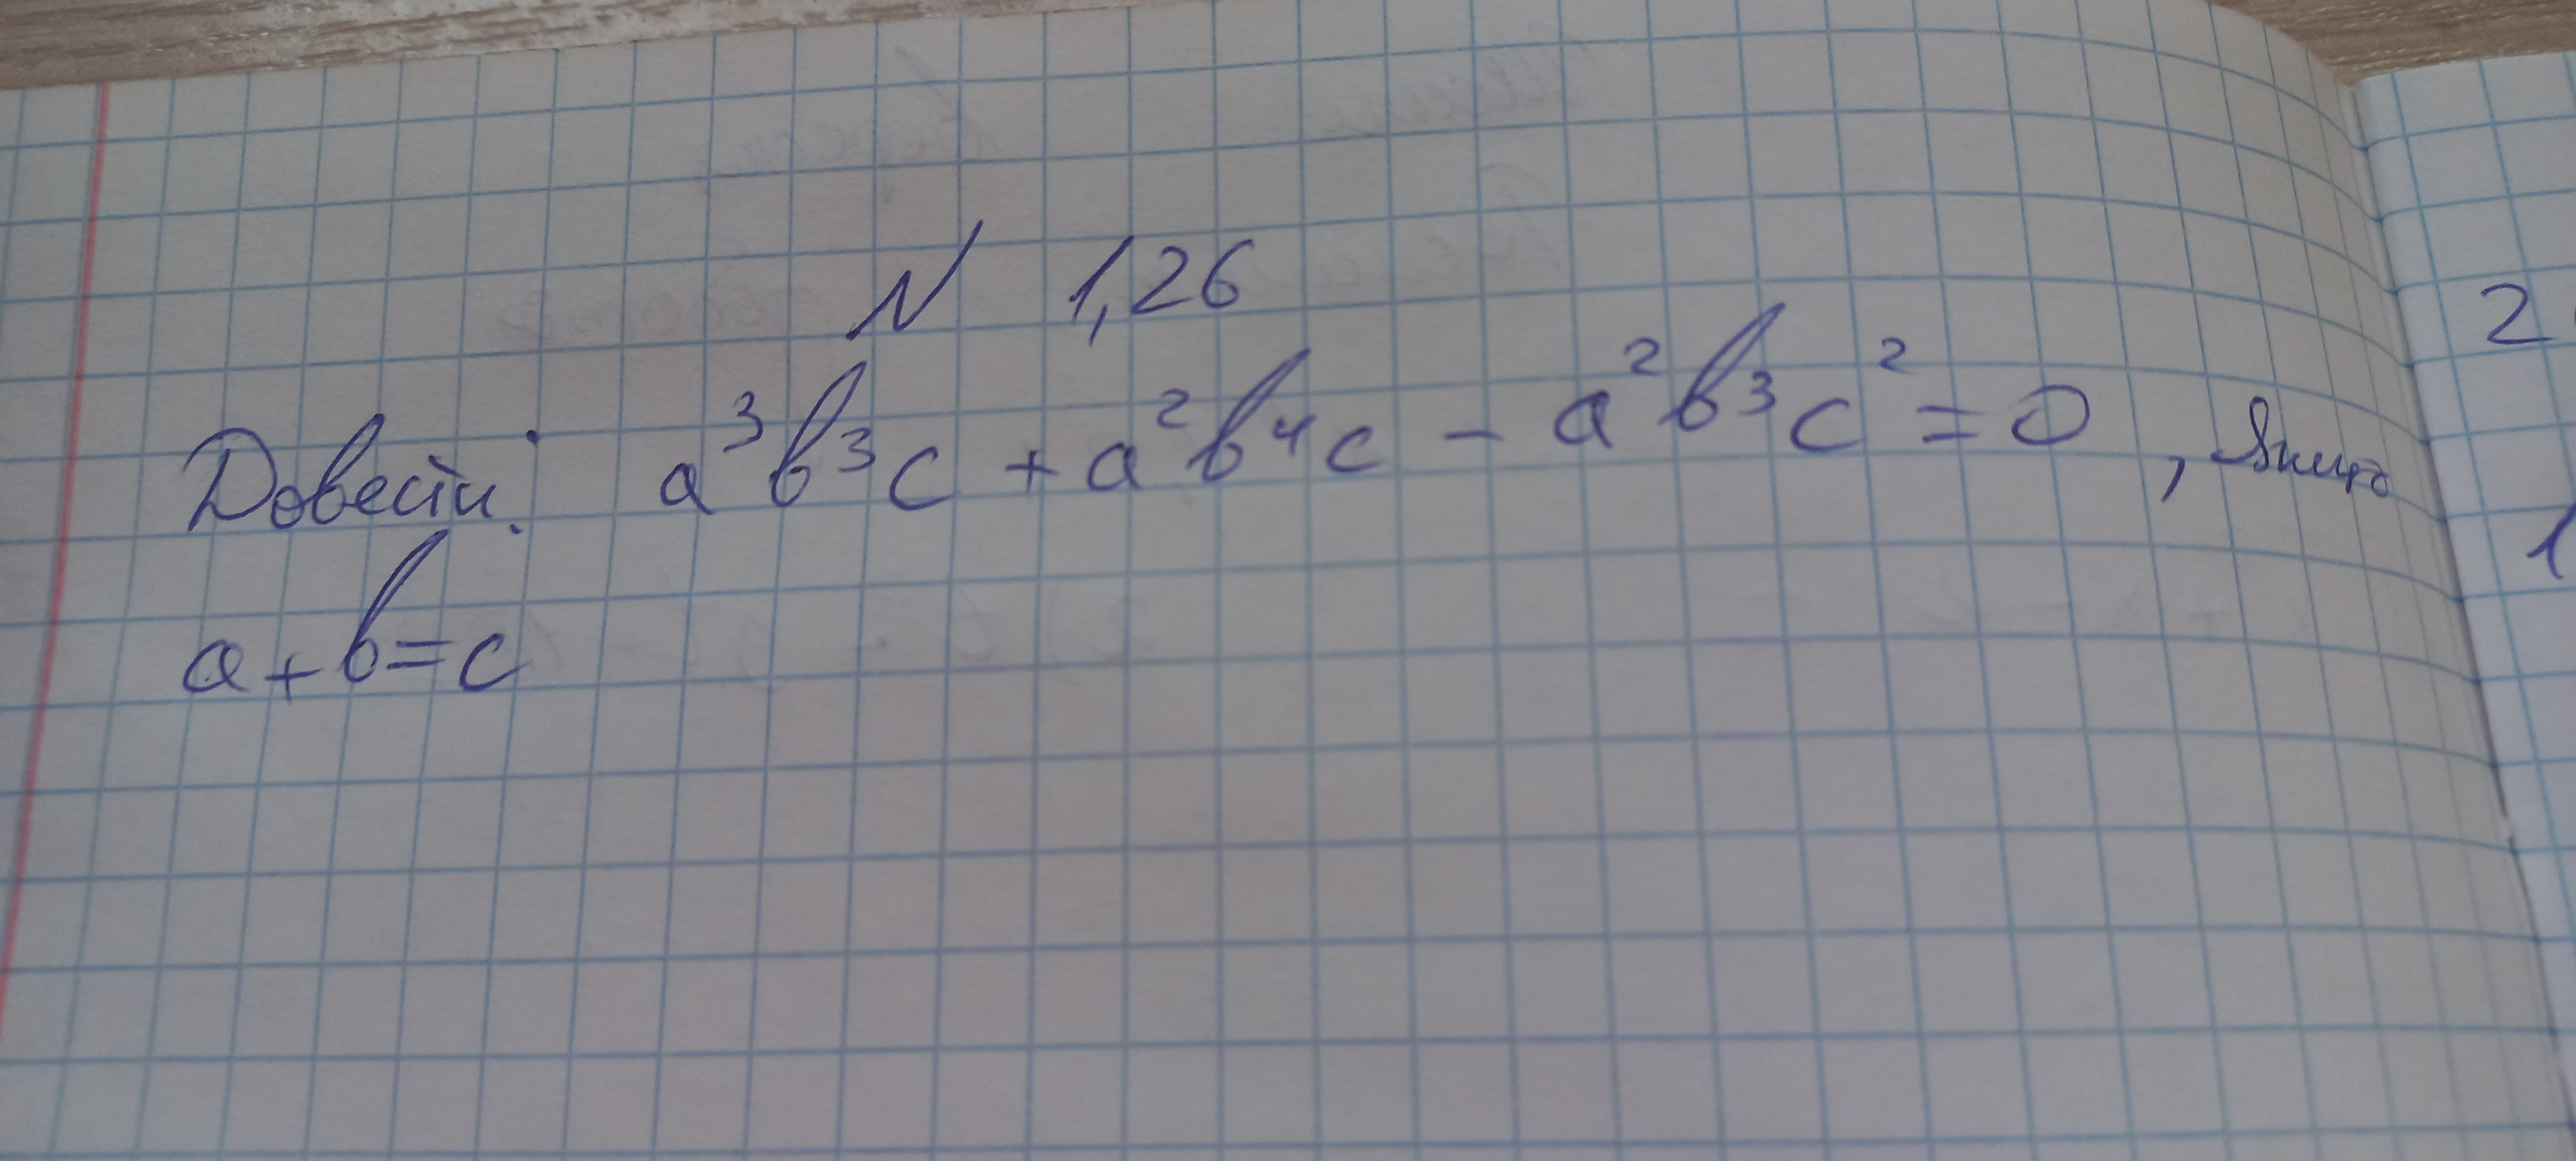 N 1,26
Довести: a³b³c + a²b⁴c - a²b³c² = 0, якщо
a+b=c
2
1